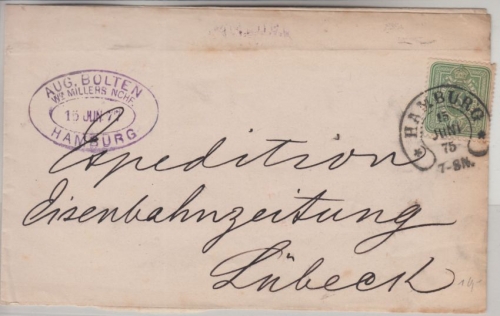 AUG. BOLTEN
Wm MILLERS NCHF.
15 JUN 77
HAMBURG
HAMBURG
15
JUNI
75
7-8N.
Expedition
Eisenbahnzeitung
Lübeck